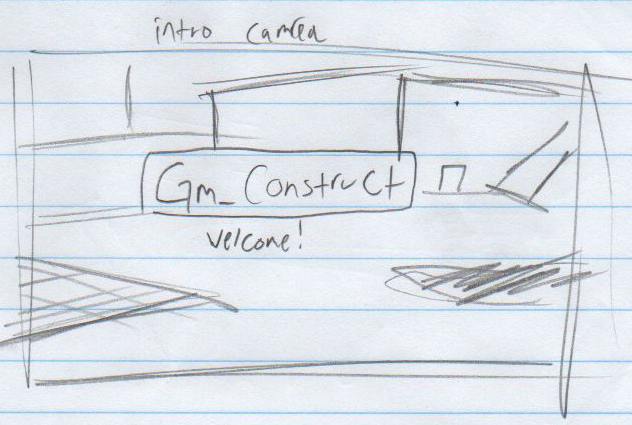 intro camera
Gm_Construct
velcome!